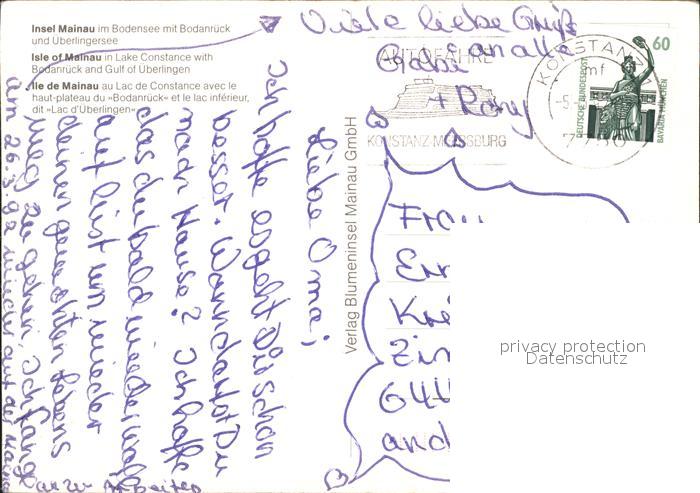 Insel Mainau im Bodensee mit Bodanrück
und Überlingersee
Isle of Mainau in Lake Constance with
Bodanrück and Gulf of Überlingen
Île de Mainau au Lac de Constance avec le
haut-plateau du »Bodanrück« et le lac inférieur,
dit »Lac d'Überlingen«
Viele liebe Grüße
an alle
Gabi
+ Romy
AUTOFÄHRE
KONSTANZ-MEERSBURG
KONSTANZ
mf
-5.
DEUTSCHE BUNDESPOST
60
BAVARIA MÜNCHEN
Verlag Blumeninsel Mainau GmbH
Liebe Oma,
Ich hoffe es geht Dir schon
besser. Wann darfst Du
nach Hause? Ich hoffe
das du bald wieder
auf bist um wieder
deinen gewohnten Lebens
weg zu gehen. Ich fang
am 26.3. wieder auf der Mainau
an zu Arbeiten
Fr
Er
Kre
Zim
644
and
privacy protection
Datenschutz